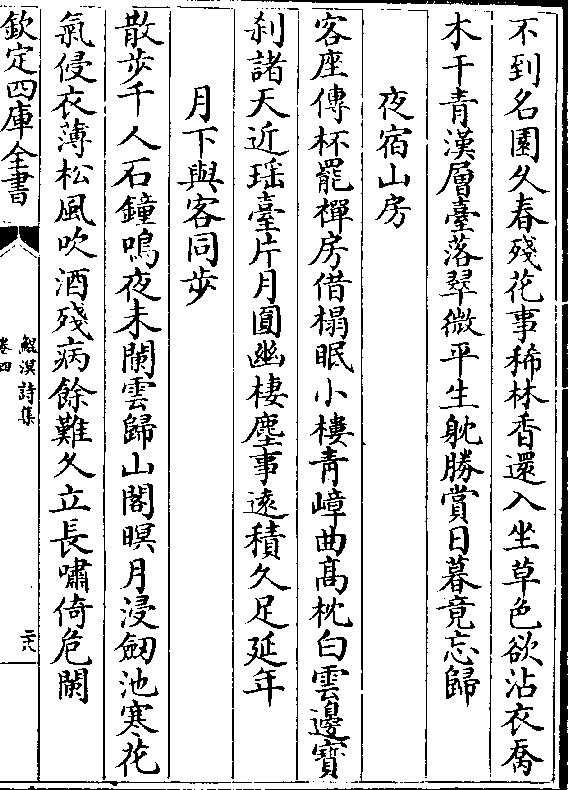 不到名園久春殘花事稀林香還入坐草色欲沾衣喬
木干青漢層臺落翠微平生躭勝賞日暮竟忘歸
夜宿山房
客座傳杯罷禪房借榻眠小樓青嶂曲髙枕白雲邊寳
刹諸天近瑶臺片月圓幽棲塵事逺積久足延年
月下與客同步
散步千人石鐘鳴夜未闌雲歸山閣暝月浸劒池寒花
氣侵衣薄松風吹酒殘病餘難久立長嘯倚危闌
欽定四庫全書
鯤溟詩集
卷四
二十八